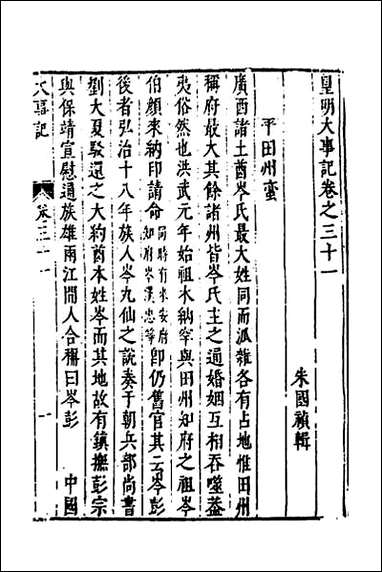 皇明大事記卷之三十一
朱國禎輯
平田州蠻
廣西諸土酋岑氏最大姓同而派雜各有占地惟田州
稱府最大其餘諸州皆岑氏主之通婚姻互相吞噬蓋
夷俗然也洪武元年始祖木納罕與田州知府之祖岑
伯顏來納印請命同時有來安府知府岑漢忠等卽仍舊官其云岑彭
後者弘治十八年族人岑九仙之說奏于朝兵部尚書
劉大夏駁還之大約酋本姓岑而其地故有鎮撫彭宗
與保靖宣慰通族雄兩江間人合稱曰岑彭 中國
大事記 卷三十一 一